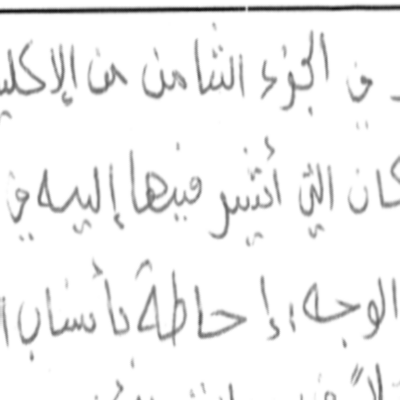 في الجزء الثامن من الإكليل
كان التي أشير فيها إليه في
الوجه؛ إحاطة بأنساب ا